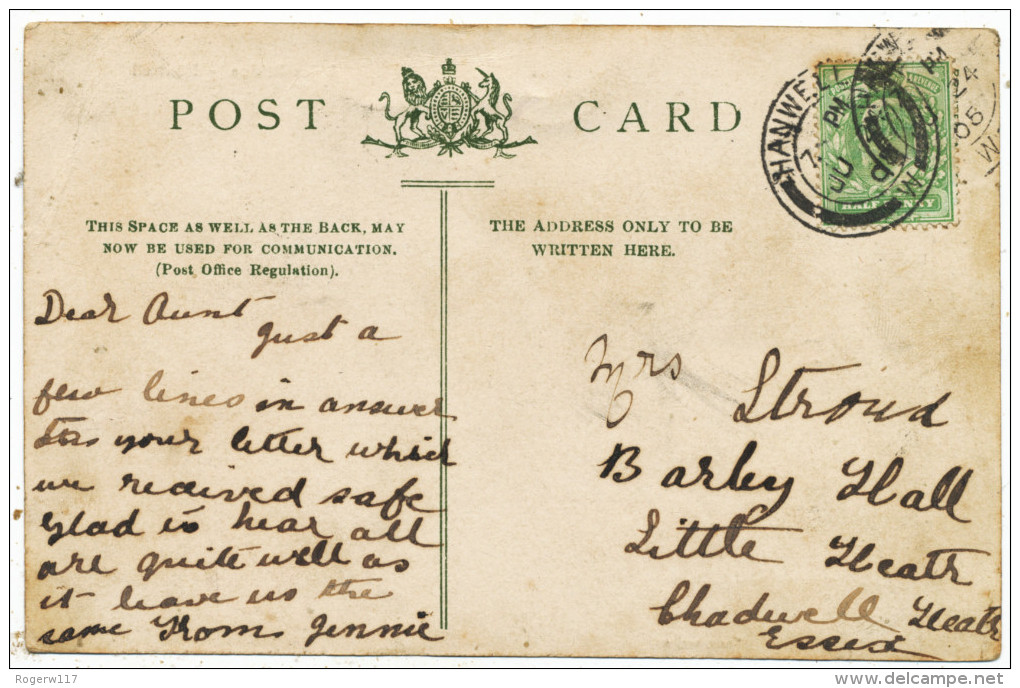 POST CARD
THIS SPACE AS WELL AS THE BACK, MAY
NOW BE USED FOR COMMUNICATION.
(Post Office Regulation).
THE ADDRESS ONLY TO BE
WRITTEN HERE.
HANWELL
PM
JU
W
PM
24
05
W
HALF PENNY
Dear Aunt
Just a
few lines in answer
to your letter which
we recived safe
glad to hear all
are quite well as
it leave us the
same From Jennie
Mrs Stroud
Barley Hall
Little Heath
Chadwell Heath
Essex
Rogerw117
delcampe.net